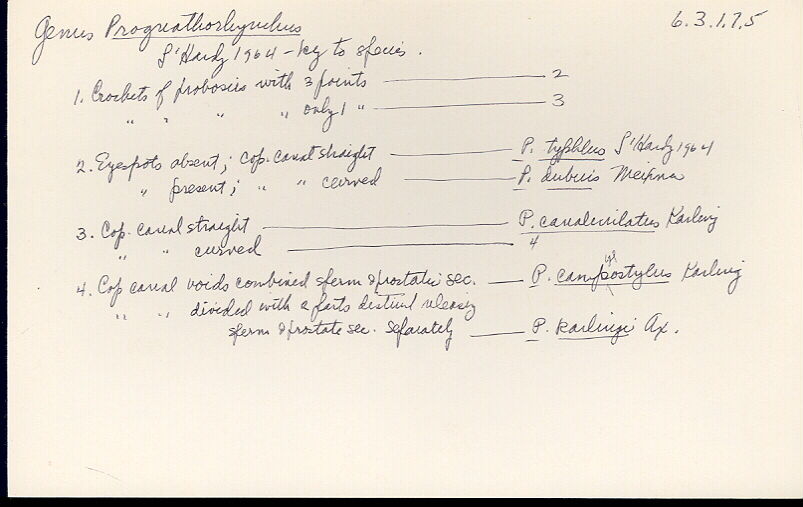 Genus Prognathorhynchus 6.3.1.7.5
L'Hardy 1964 - key to species.
1. Crochets of proboscis with 3 points 2
" " " " only 1 " 3
2. Eyespots absent; cop. canal straight P. typhlus L'Hardy 1964
" present; " " curved P. dubius Meixner
3. Cop. canal straight P. canaliculatus Karling
" " curved 4
4. Cop canal voids combined sperm & prostatic sec. P. campylostylus Karling
" " divided with 2 parts distinct releasing
sperm & prostate sec. separately P. karlingi Ax.